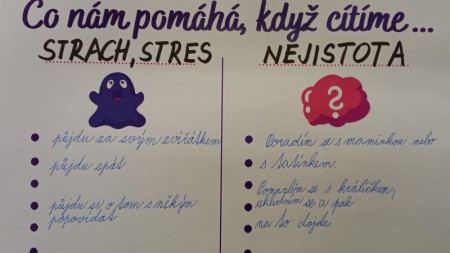 Co nám pomáhá, když cítíme...
STRACH, STRES
půjdu za svým zvířátkem
půjdu spát
půjdu si o tom s někým
popovídat
NEJISTOTA
! ?
Poradím se s maminkou nebo
s tatínkem.
Pomazlím se s králíčkem,
uklidním se a pak
na to dojdu.